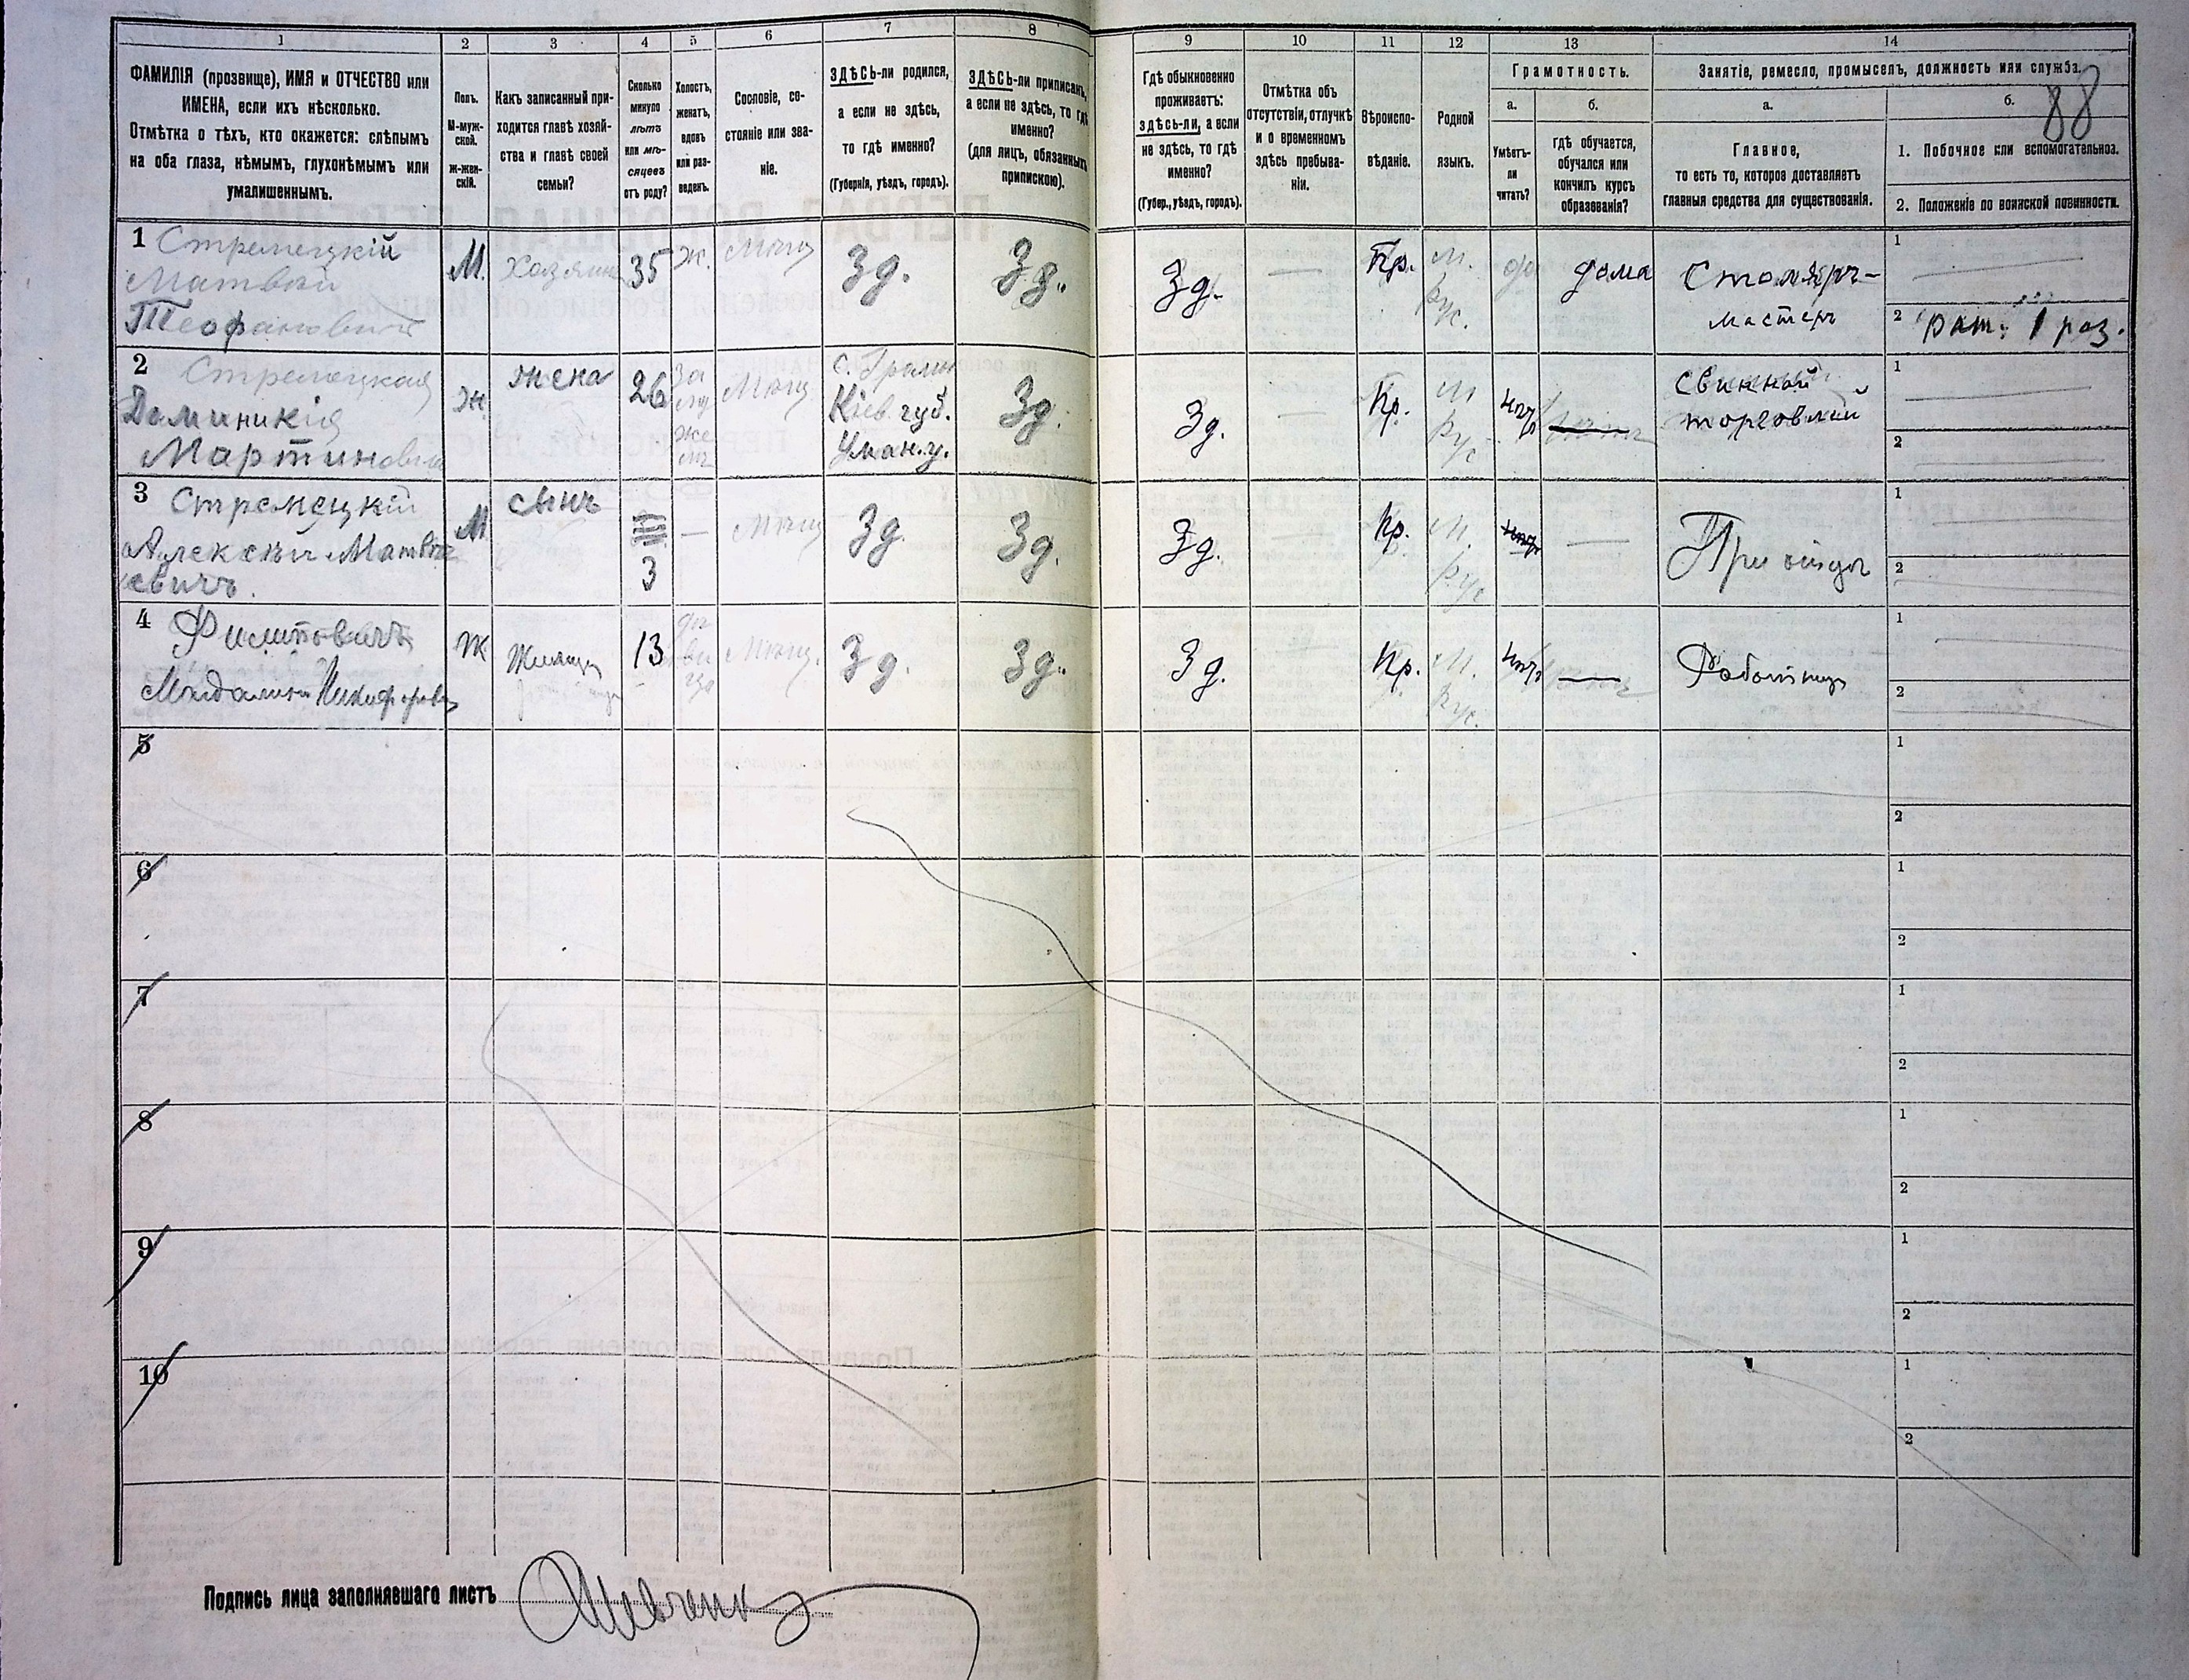 1 2 3 4 5 6 7 8 9 10 11 12 13 14
ФАМИЛІЯ (прозвище), ИМЯ и ОТЧЕСТВО или
ИМЕНА, если ихъ нѣсколько.
Отмѣтка о тѣхъ, кто окажется: слѣпымъ
на оба глаза, нѣмымъ, глухонѣмымъ или
умалишеннымъ.
Полъ.
М-муж-
ской.
Ж-жен-
скій.
Какъ записанный при-
ходится главѣ хозяй-
ства и главѣ своей
семьи?
Сколько
минуло
лѣтъ
или мѣ-
сяцевъ
отъ роду?
Холостъ,
женатъ,
вдовъ
или раз-
веденъ.
Сословіе, со-
стояніе или зва-
ніе.
ЗДѢСЬ-ли родился,
а если не здѣсь,
то гдѣ именно?
(Губернія, уѣздъ, городъ).
ЗДѢСЬ-ли приписанъ,
а если не здѣсь, то гдѣ
именно?
(для лицъ, обязанныхъ
припискою).
Гдѣ обыкновенно
проживаетъ:
здѣсь-ли, а если
не здѣсь, то гдѣ
именно?
(Губер., уѣздъ, городъ).
Отмѣтка объ
отсутствіи, отлучкѣ
и о временномъ
здѣсь пребыва-
ніи.
Вѣроиспо-
вѣданіе.
Родной
языкъ.
Грамотность.
а.
Умѣетъ-
ли
читать?
б.
гдѣ обучается,
обучался или
кончилъ курсъ
образованія?
Занятіе, ремесло, промыселъ, должность или служба.
88
а.
Главное,
то есть то, которое доставляетъ
главныя средства для существованія.
б.
1. Побочное или вспомогательное.
2. Положеніе по воинской повинности.
1 Стрелецкій
Матвѣй
Теофановичъ
М.
Хозяинъ
35
ж.
Мѣщ
Зд.
Зд.
Зд.
—
Пр.
М.
Рус.
да
дома
Столяръ-
мастеръ
1
2 рат. 1 раз.
2 Стрелецкая
Доминикія
Мартиновна
Ж.
жена
26
За
му
же
мъ
Мѣщ
Кіев. губ.
Уман. у.
Зд.
Зд.
Пр.
М
Рус
нѣтъ
свинной
торговлей
1
2
3 Стрелецкій
Алексѣй Матвѣ
евичъ.
М
сынъ
3
—
Мѣщ
Зд
Зд.
Зд.
Пр.
М.
Рус
—
При отцѣ
1
2
4 Филиповичъ
Магдалина Никифорова
Ж
Жилица
13
дѣ
ви
ца
Мѣщ.
Зд.
Зд.
Зд.
Пр.
М.
Рус.
нѣтъ
Работница
1
2
5
1
2
6
1
2
7
1
2
8
1
2
9
1
2
10
1
2
Подпись лица заполнявшаго листъ Шевченко